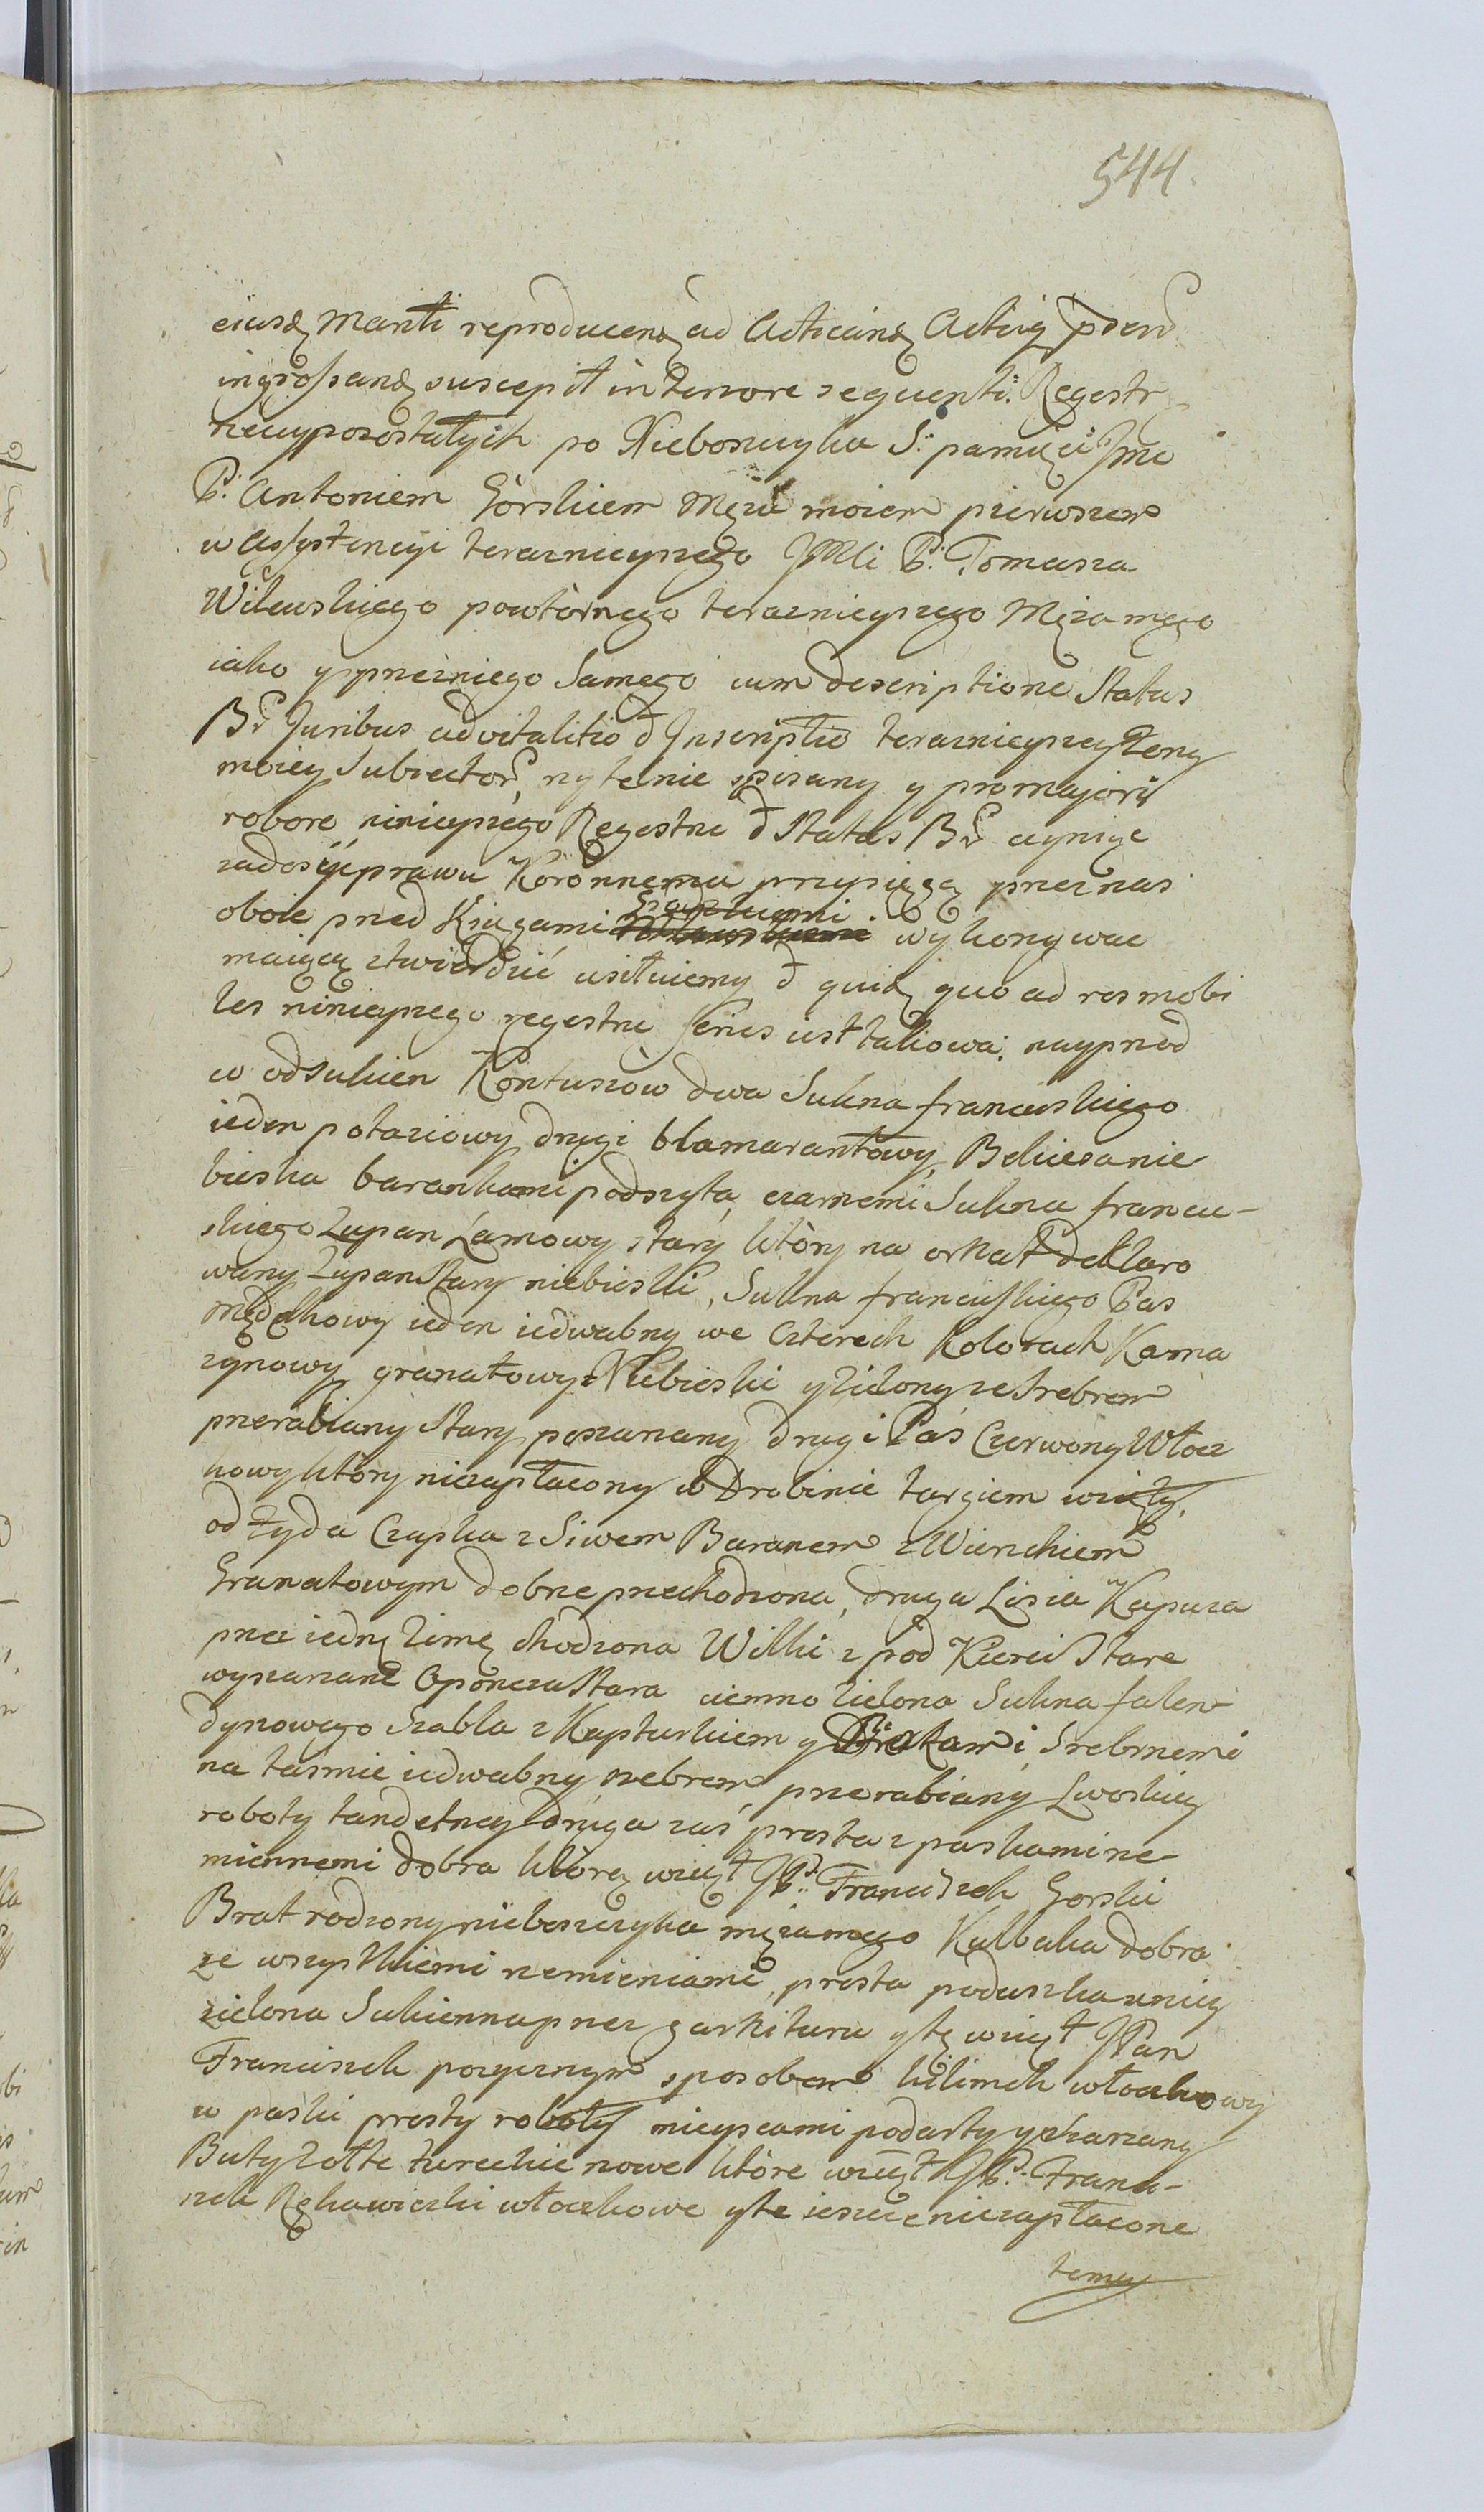 544.
eiusq Manti reproducenq ad Acticanq Actisq psens
ingrossanq suscepit in tenore sequenti. Regestr
rzeczy pozostałych po Nieboszczyku S: pamięci Jmc
P: Antoniem Górskiem Mężu moiem pierwszem
w Assystencyi teraznieyszego JMci P: Tomasza
Wilewskiego powtòrnego teraznieyszego Męża mego
iako y przezniego Samego cum descriptione Status
Br Juribus advitalitio et Inscriptio teraznieyszey Zony
moiey Subiector, rzytelnie spisany y pro majori
robore ninieyszego Regestru et Status Br czyniąc
zadosyć prawu Koronnemu przysięgą przeznas
oboie przed Xięgami wykonywac
maiącą ztwierdzić usiłuiemy et quidq quo ad res mobi
les ninieyszego regestru Series iest takowa: nayprzod
w od Sukien Kontuszòw dwa Sukna francuskiego
ieden potaziowy drugi blamarantowy, Bekiesa nie
bieska barankami podszyta czarnemi Sukna francu-
skiego Zupan Łamowy stary ktòry na ornat deklaro
wany Zupan Stary niebieski, Sukna francuskiego Pas
Mędelkowy ieden iedwabny we Czterech Kolorach Karma
zynowy granatowy Niebieski y Zielony ze Srebrem
przerabiany Stary poszarzany drugi Pas Czerwony Włocz
kowy ktòry niezapłacony w Drobinie targiem wzięty
od Zyda Czapka z Siwem Baranem z Wierzchiem
Granatowym dobrze przechodzona, druga Lisia Kapuza
przez iednę Zimę chodzona Wilki z pod Kierei Stare
wyszarzane Opończa Stara ciemno Zielona Sukna falen
dynowego Szabla z Kapturkiem y Srebrnemi
na tasmie iedwabny srebrem przerabiany Lwoskiey
roboty tandetney druga zaś prosta z paskami rze-
miennemi dobra ktòrą wziął JP: Franciszek Gorski
Brat rodzony nieboszczyka męza mego Kulbaka dobra
ze wszystkiemi rzemieniami, prosta poduszka u niey
zielona Sukienna przez garnituru y tę wziął JPan
Franciszek pozycznym sposobem kilimek włoczkowy
w paski prosty roboty mieyscami podarty y zszarzany
Buty zołte tureckie nowe ktòre wziął JP: Franci-
szek Rękawiczki włoczkowe y te ieszcze niezapłacone
temu